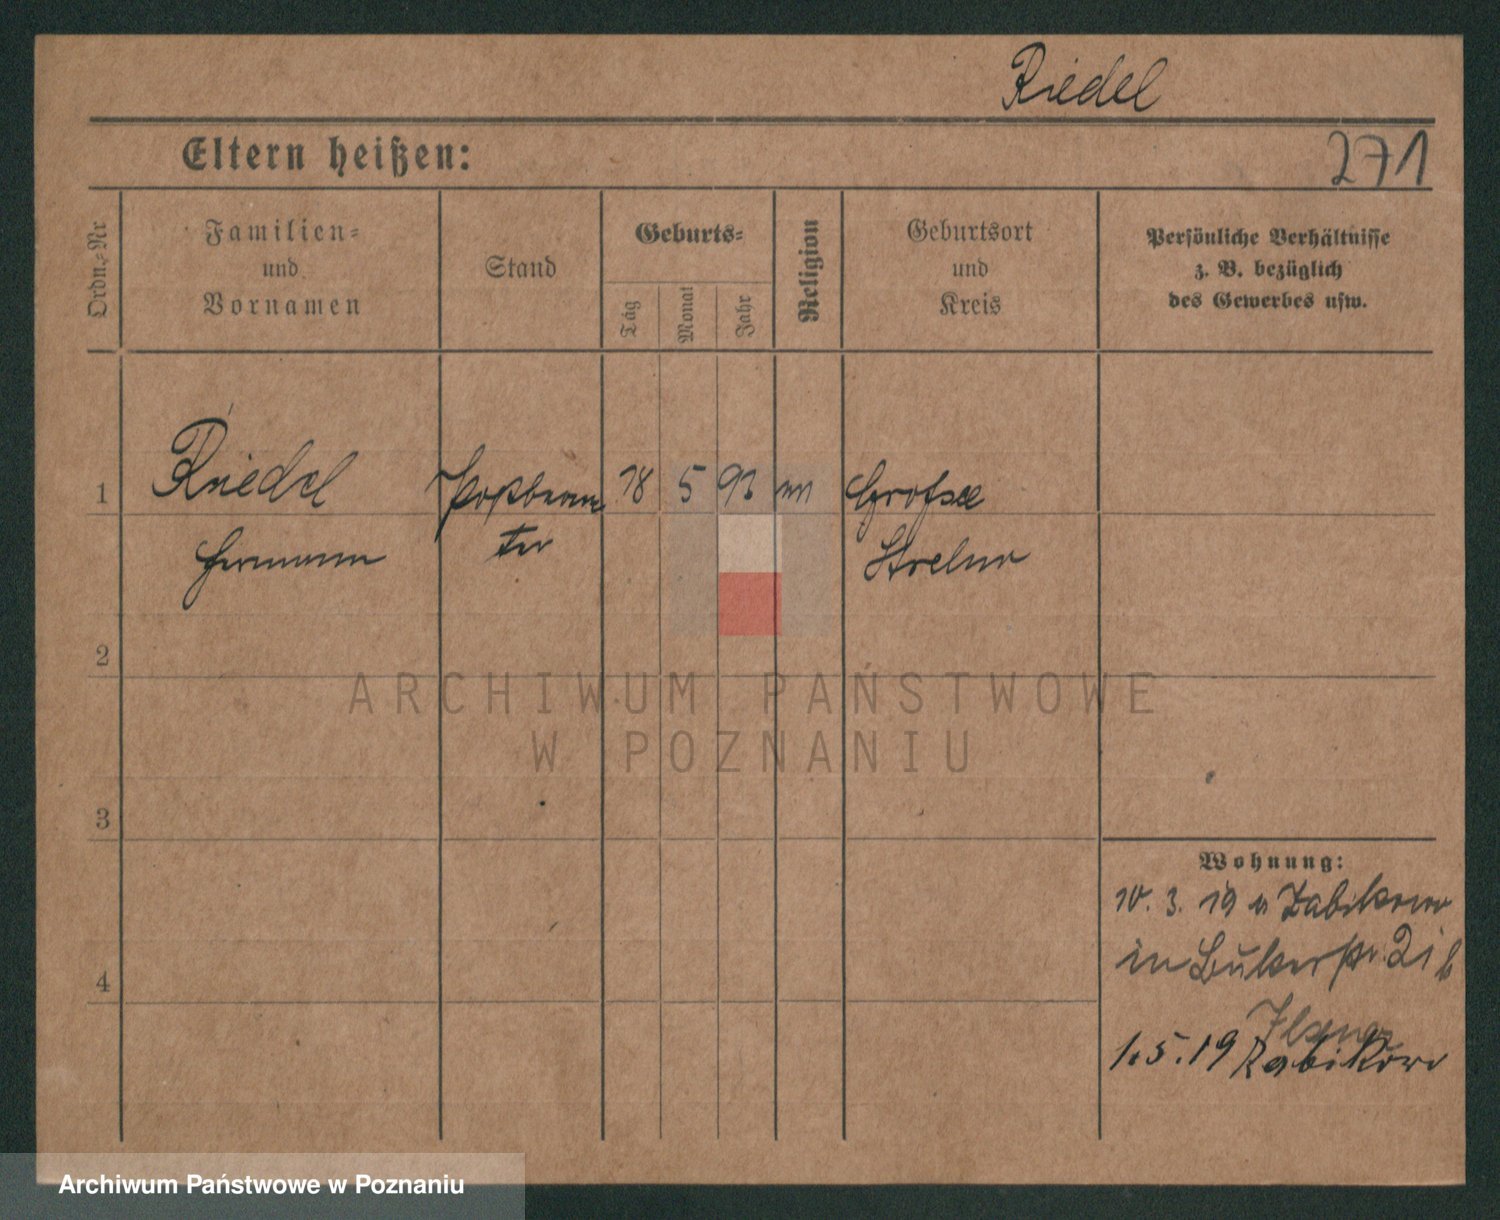 Riedel
271
Eltern heißen:
Ordn.-Nr
Familien-
und
Vornamen
Stand
Geburts-
Tag
Monat
Jahr
Religion
Geburtsort
und
Kreis
Persönliche Verhältnisse
z. B. bezüglich
des Gewerbes usw.
1 Riedel Postbeam 18 5 93 Grofsee
Hermann ter Strelno
2
3
4
ARCHIWUM PAŃSTWOWE
W POZNANIU
Wohnung:
10. 3. 19 Zabikowo
in Bukerstr.
1.5.19 Zabikowo
Archiwum Państwowe w Poznaniu